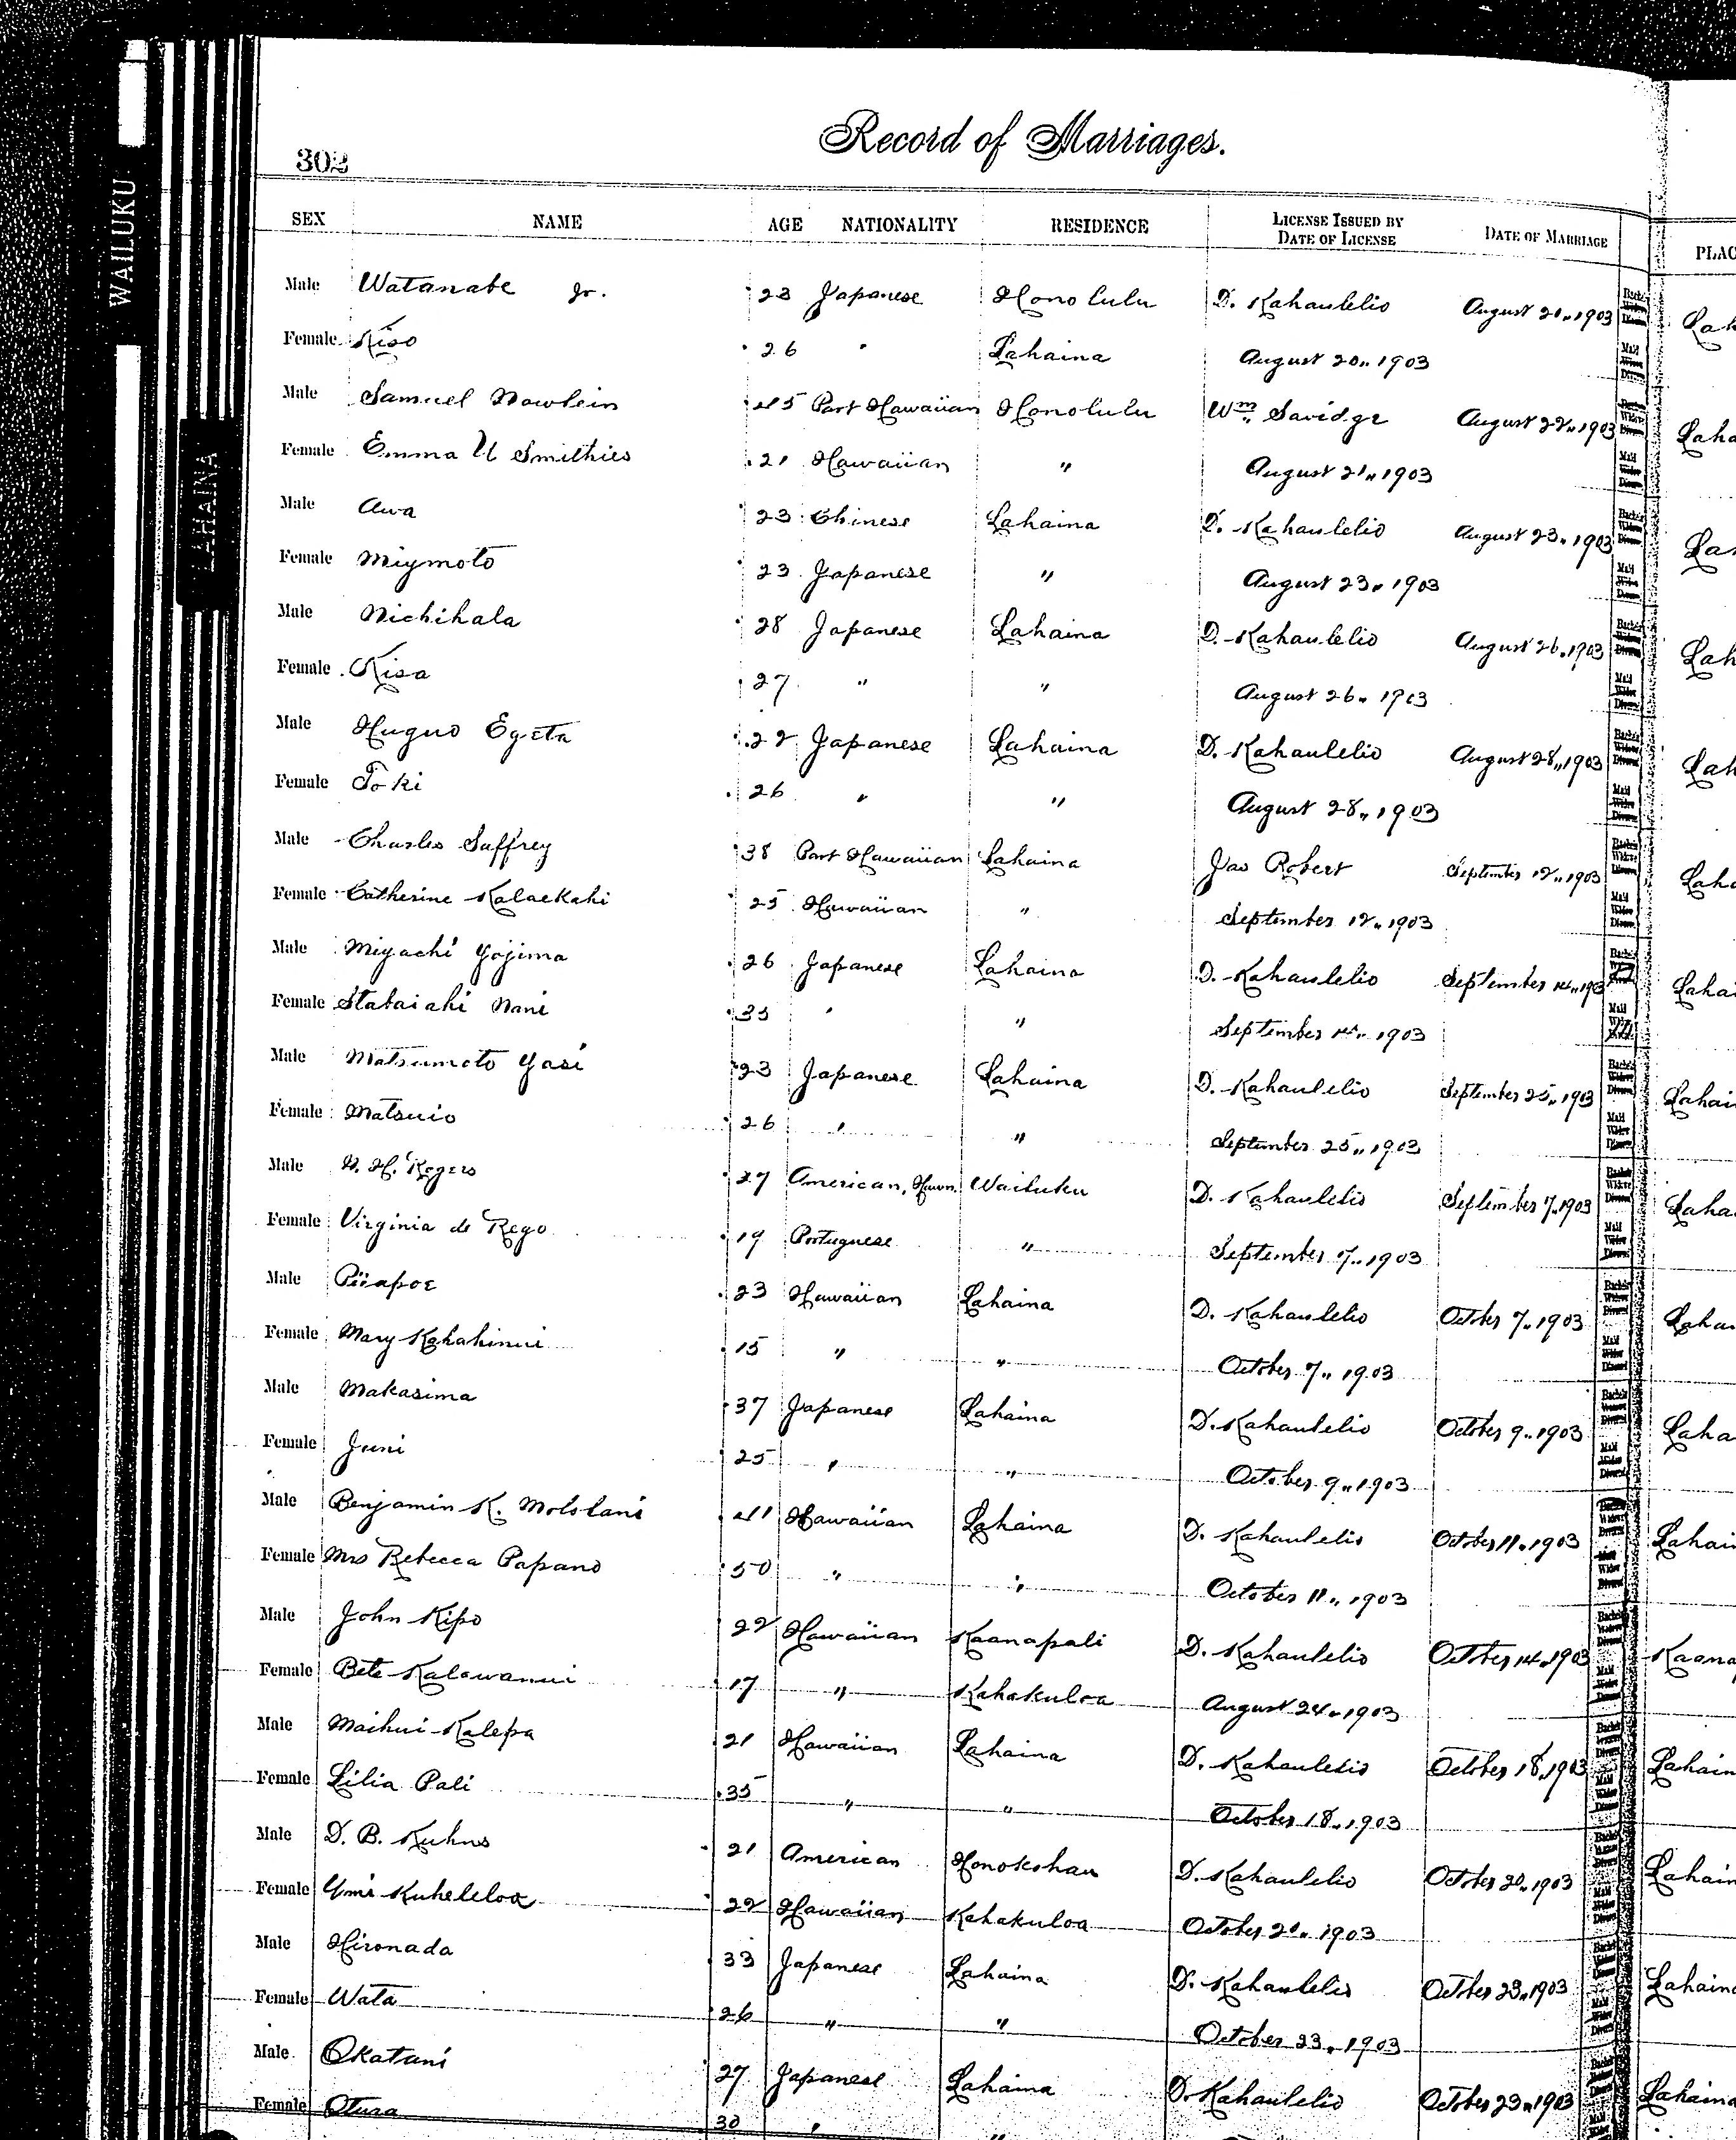 WAILUKU
LAHAINA
302
Record of Marriages.
SEX NAME AGE NATIONALITY RESIDENCE LICENSE ISSUED BY DATE OF LICENSE DATE OF MARRIAGE PLAC
Male Watanabe Jr. 23 Japanese Honolulu D. Kahaulelio August 21" 1903 Lah
Female Kiso 26 " Lahaina August 20" 1903
Male Samuel Nowlein 45 Part Hawaiian Honolulu Wm Savidge August 22" 1903 Laha
Female Emma U Smithies 21 Hawaiian " August 21" 1903
Male Awa 23 Chinese Lahaina D. Kahaulelio August 23" 1903 Lah
Female Miymoto 23 Japanese " August 23" 1903
Male Nichihala 28 Japanese Lahaina D. Kahaulelio August 26" 1903 Lah
Female Kisa 27 " " August 26" 1903
Male Huguo Egeta 22 Japanese Lahaina D. Kahaulelio August 28" 1903 Lah
Female Toki 26 " " August 28" 1903
Male Charles Saffrey 38 Part Hawaiian Lahaina Jas Robert September 12" 1903 Laha
Female Catherine Kalaekahi 25 Hawaiian " September 12" 1903
Male Miyachi Yojima 26 Japanese Lahaina D. Kahaulelio September 14" 190 Lahai
Female Stabaiahi Nani 35 " " September 14" 1903
Male Matsumoto Yasi 23 Japanese Lahaina D. Kahaulelio September 25" 1903 Lahai
Female Matsuio 26 " " September 25" 1903
Male H. Rogers 27 American, Hawn. Wailuku D. Kahaulelio September 7" 1903 Laha
Female Virginia de Rego 19 Portuguese " September 7" 1903
Male Piiapoe 23 Hawaiian Lahaina D. Kahaulelio October 7" 1903 Laha
Female Mary Kahahinui 15 " " October 7" 1903
Male Makasima 37 Japanese Lahaina D. Kahaulelio October 9" 1903 Laha
Female Juni 25 " " October 9" 1903
Male Benjamin K. Mololani 41 Hawaiian Lahaina D. Kahaulelio October 11" 1903 Lahai
Female Mrs Rebecca Papano 50 " " October 11" 1903
Male John Kipo 22 Hawaiian Kaanapali D. Kahaulelio October 14" 1903 Kaana
Female Bete Kalawanui 17 " Kahakuloa August 24" 1903
Male Maihui Kalepa 21 Hawaiian Lahaina D. Kahaulelio October 18" 1903 Lahain
Female Lilia Pali 35 " " October 18" 1903
Male D. B. Kuhns 21 American Honokohau D. Kahaulelio October 20" 1903 Lahain
Female Kuheleloa 22 Hawaiian Kahakuloa October 20" 1903
Male Hironada 33 Japanese Lahaina D. Kahaulelio October 23" 1903 Lahaina
Female Wata 26 " " October 23" 1903
Male Okatani 27 Japanese Lahaina D. Kahaulelio October 23" 1903 Lahaina
Female Otura 30 " "